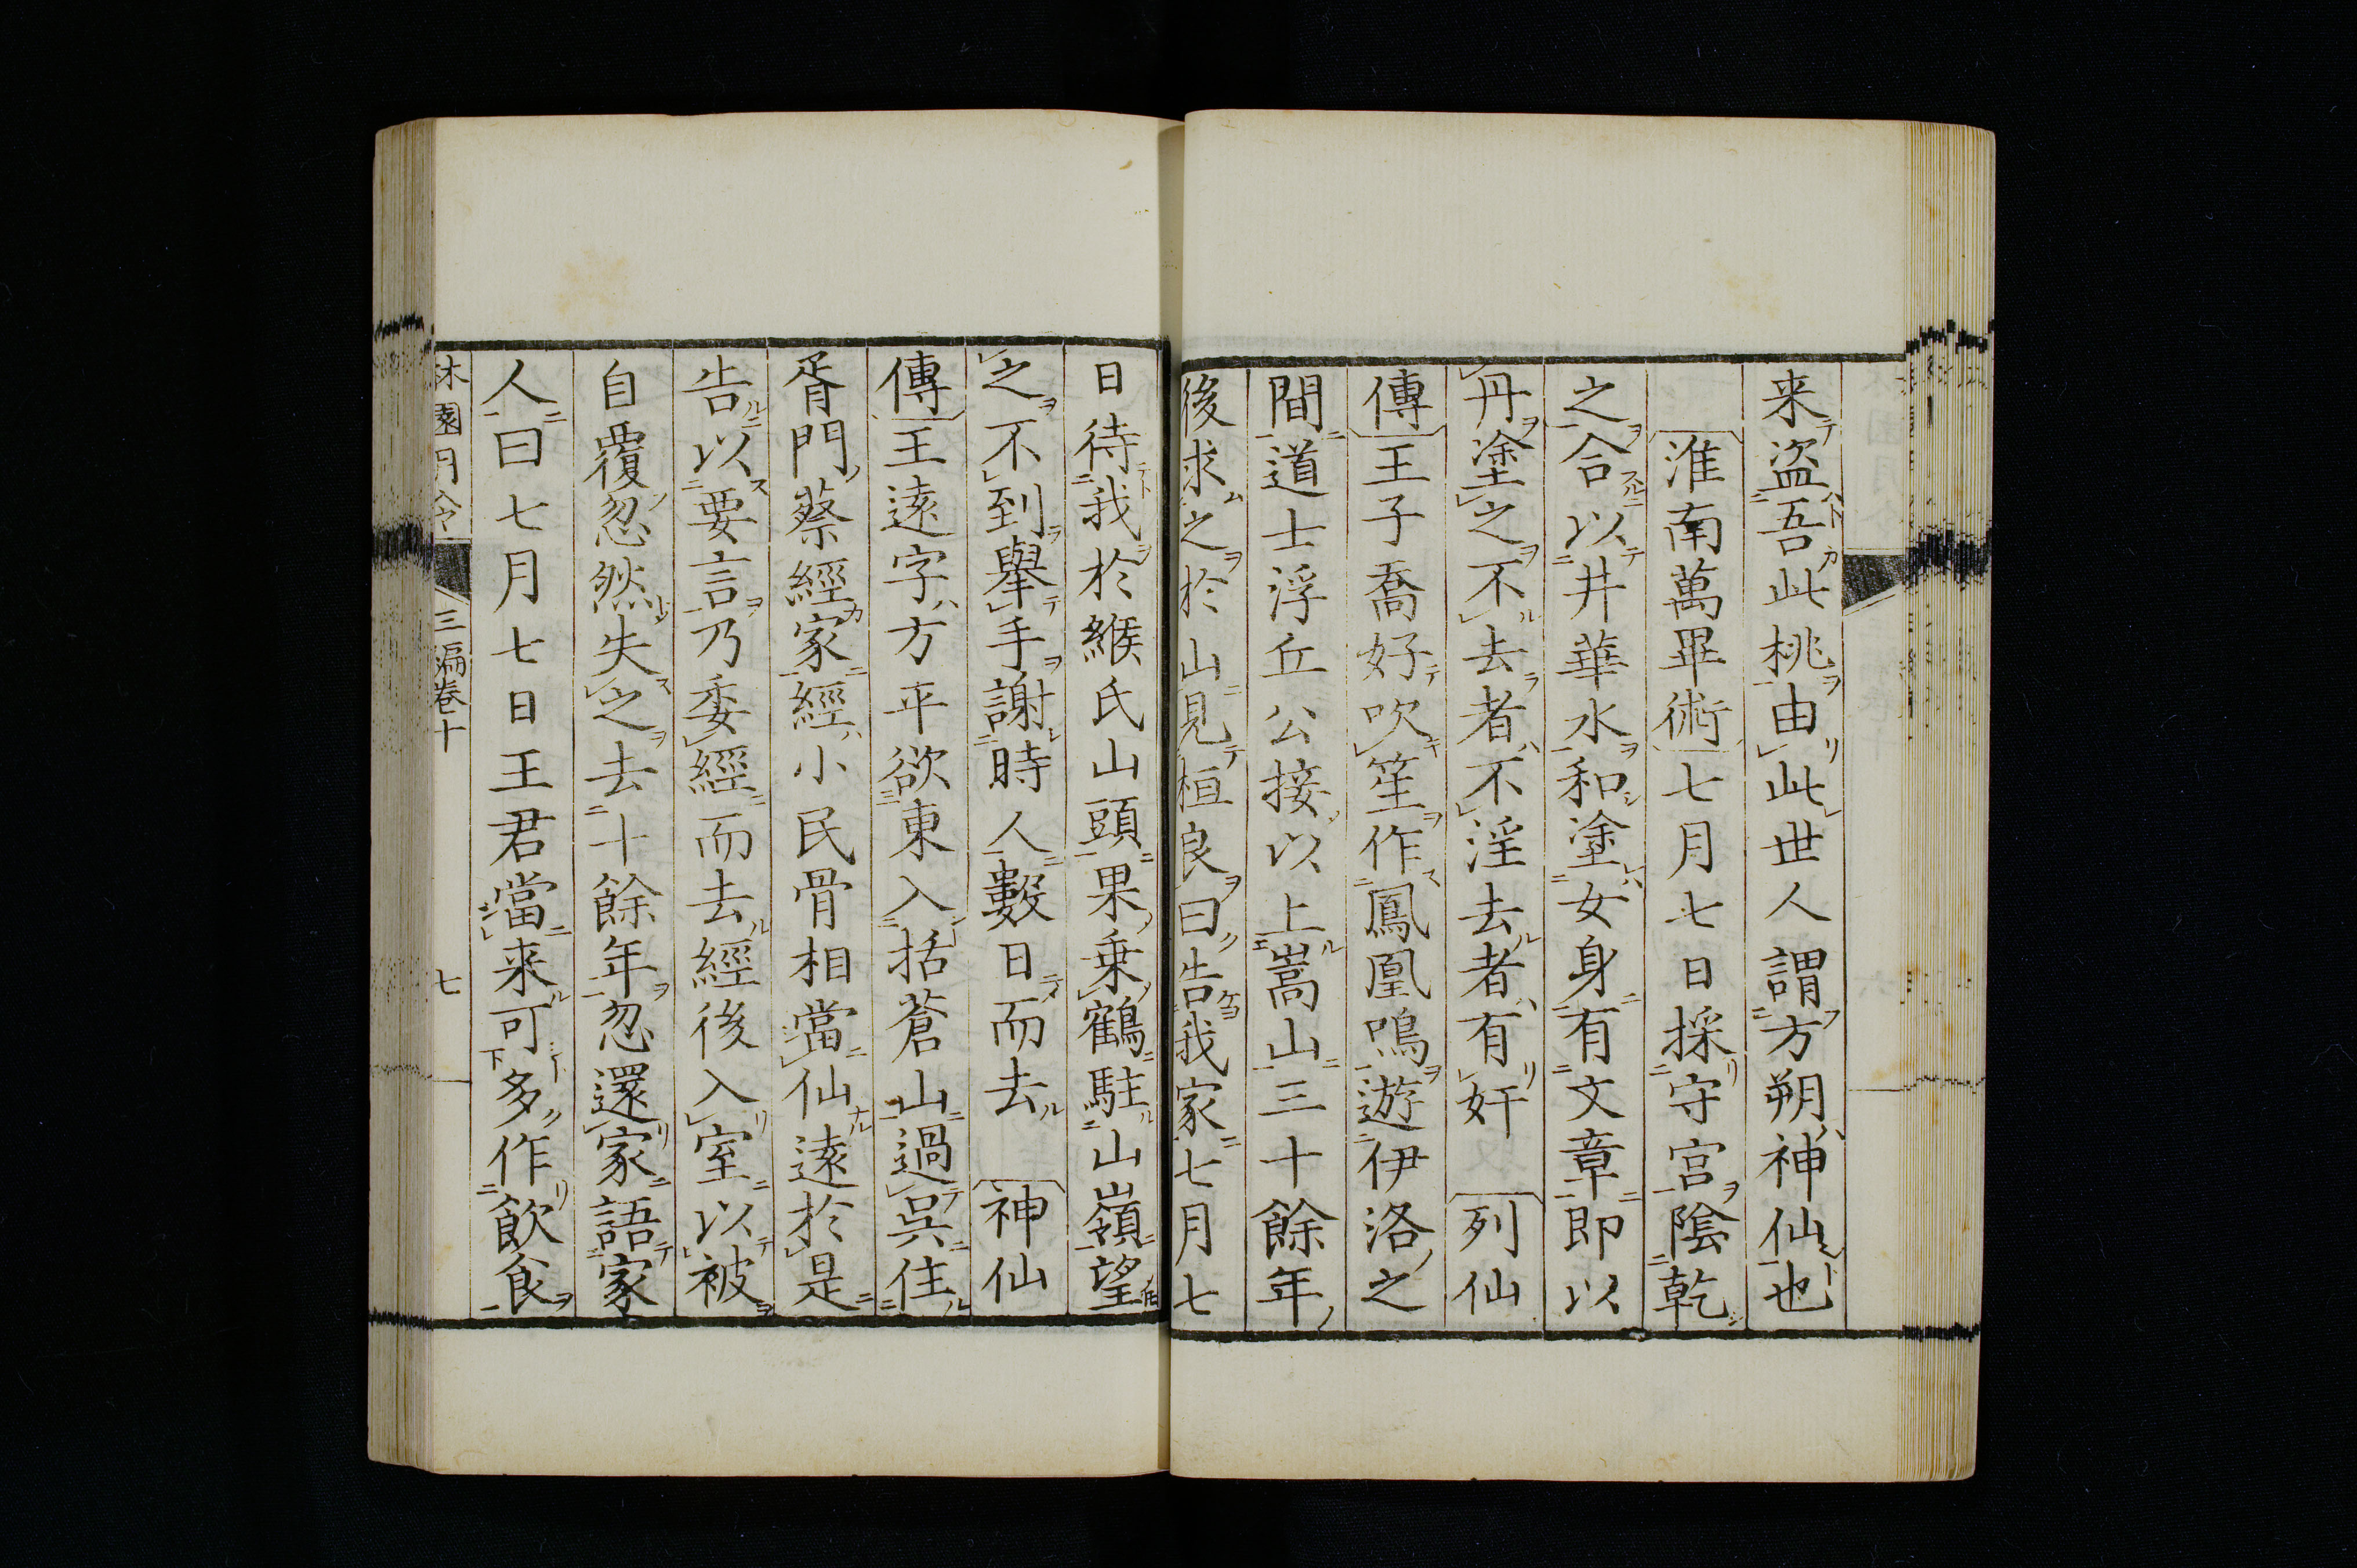 来盗吾此桃由此世人謂方朔神仙也
淮南萬畢術七月七日採守宮陰乾
之合以井華水和塗女身有文章即以
丹塗之不去者不淫去者有奸列仙
傳王子喬好吹笙作鳳凰鳴遊伊洛之
間道士浮丘公接以上嵩山三十餘年
後求之於山見桓良曰告我家七月七
日待我於緱氏山頭果乗鶴駐山嶺望
之不到舉手謝時人數日而去神仙
傳王遠字方平欲東入括蒼山過呉住
胥門蔡經家經小民骨相當仙遠於是
告以要言乃委經而去經後入室以被
自覆忽然失之去十餘年忽還家語家
人曰七月七日王君當来可多作飲食
三編卷十
七